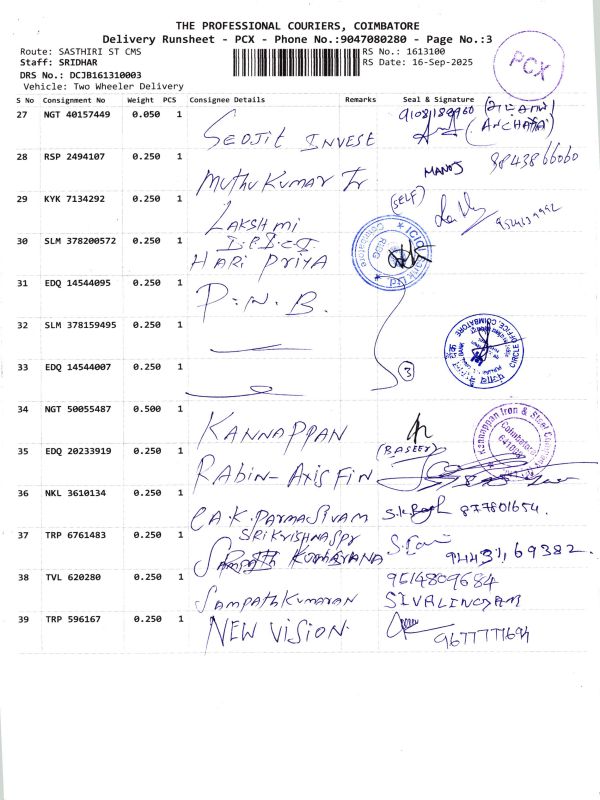 THE PROFESSIONAL COURIERS, COIMBATORE
Delivery Runsheet - PCX - Phone No.:9047080280 - Page No.:3
Route: SASTHIRI ST CMS
RS No.: 1613100
PCX
Staff: SRIDHAR
RS Date: 16-Sep-2025
DRS No.: DCJB161310003
Vehicle: Two Wheeler Delivery
S No Consignment No Weight PCS Consignee Details Remarks Seal & Signature
27 NGT 40157449 0.050 1 GEOJIT INVEST
28 RSP 2494107 0.250 1 MUTHU KUMAR MANOJ 9843866060
29 KYK 7134292 0.250 1 LAKSHMI (SELF)
30 SLM 378200572 0.250 1 HARI PRIYA
31 EDQ 14544095 0.250 1 P.N.B.
32 SLM 378159495 0.250 1
CIRCLE OFFICE, COIMBATORE
33 EDQ 14544007 0.250 1 3
34 NGT 50055487 0.500 1 KANNAPPAN
Kannappan Iron & Steel
Coimbatore
35 EDQ 20233919 0.250 1 RABIN-AXIS FIN (BASEER)
36 NKL 3610134 0.250 1 CA.K.PARMASIVAM
37 TRP 6761483 0.250 1 SRI KRISHNA 94431,69382.
38 TVL 620280 0.250 1 SAMPATHKUMARAN 9514809684
SIVALINGAM
39 TRP 596167 0.250 1 NEW VISION.